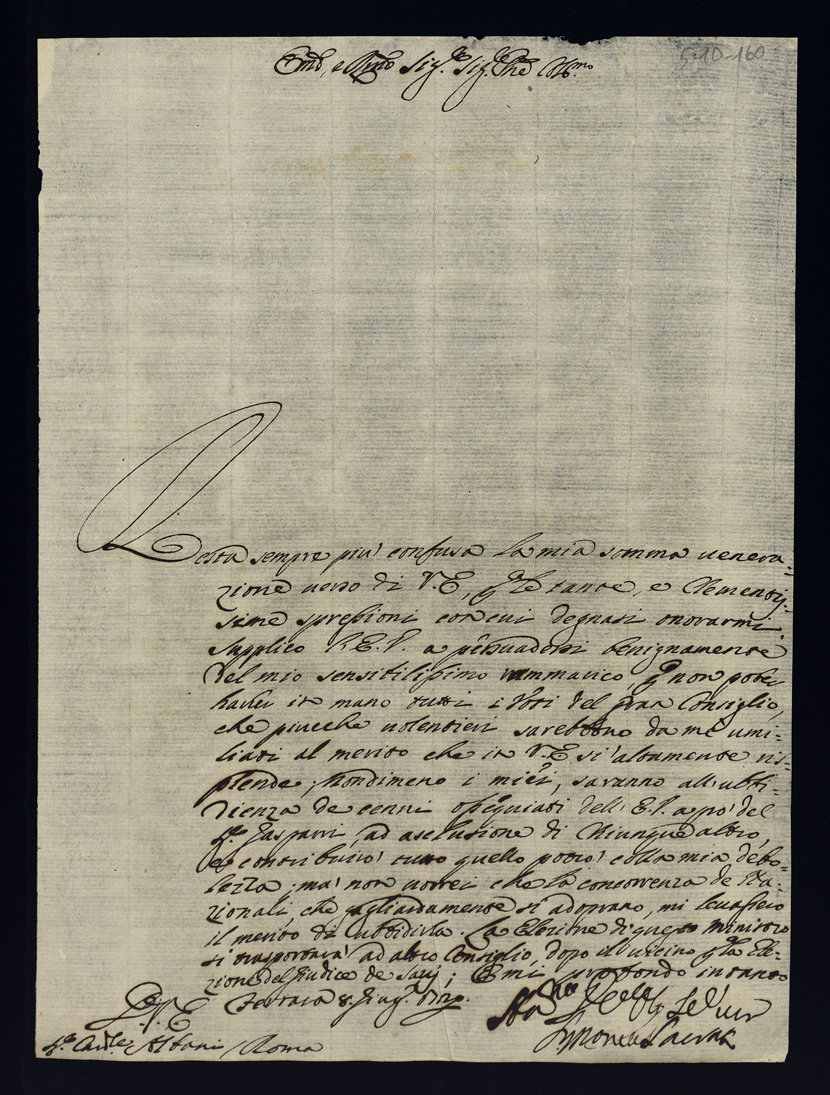 510-160
Em.o, e Sig.r Sig.r P.ne Col.mo
Resta sempre piu' confusa la mia somma venera=
zione verso di V.E, p le tante, e Clementis=
sime espressioni con cui degnasi onorarmi.
Supplico l'E.V. a persuadersi benignamente
del mio sensibilissimo rammarico, p non poter
haver in mano tutti i Voti del gran Consiglio,
che piucche volentieri sarebbono da me umi=
liati al merito che in V.E si' altamente ris=
plende; Nondimeno i miei, saranno all'ubbi=
dienza de cenni ossequiati dell'E.V. a pò del
S.r Gasparri, ad esclusione di chiunque altro,
e contribuirò tutto quello potrò colla mia debo=
lezza; ma' non vorrei che la concorrenza de Na=
zionali, che gagliardamente si adoprano, mi levassero
il merito di ubbidirla. La Elezione di questo ministro
si trasporterà ad altro Consiglio, dopo il vicino p la Ele=
zione del Giudice de Savj; E mi profondo intanto
D. V. E Ferrara 8. Giug.
S.r Card.le Albani / Roma